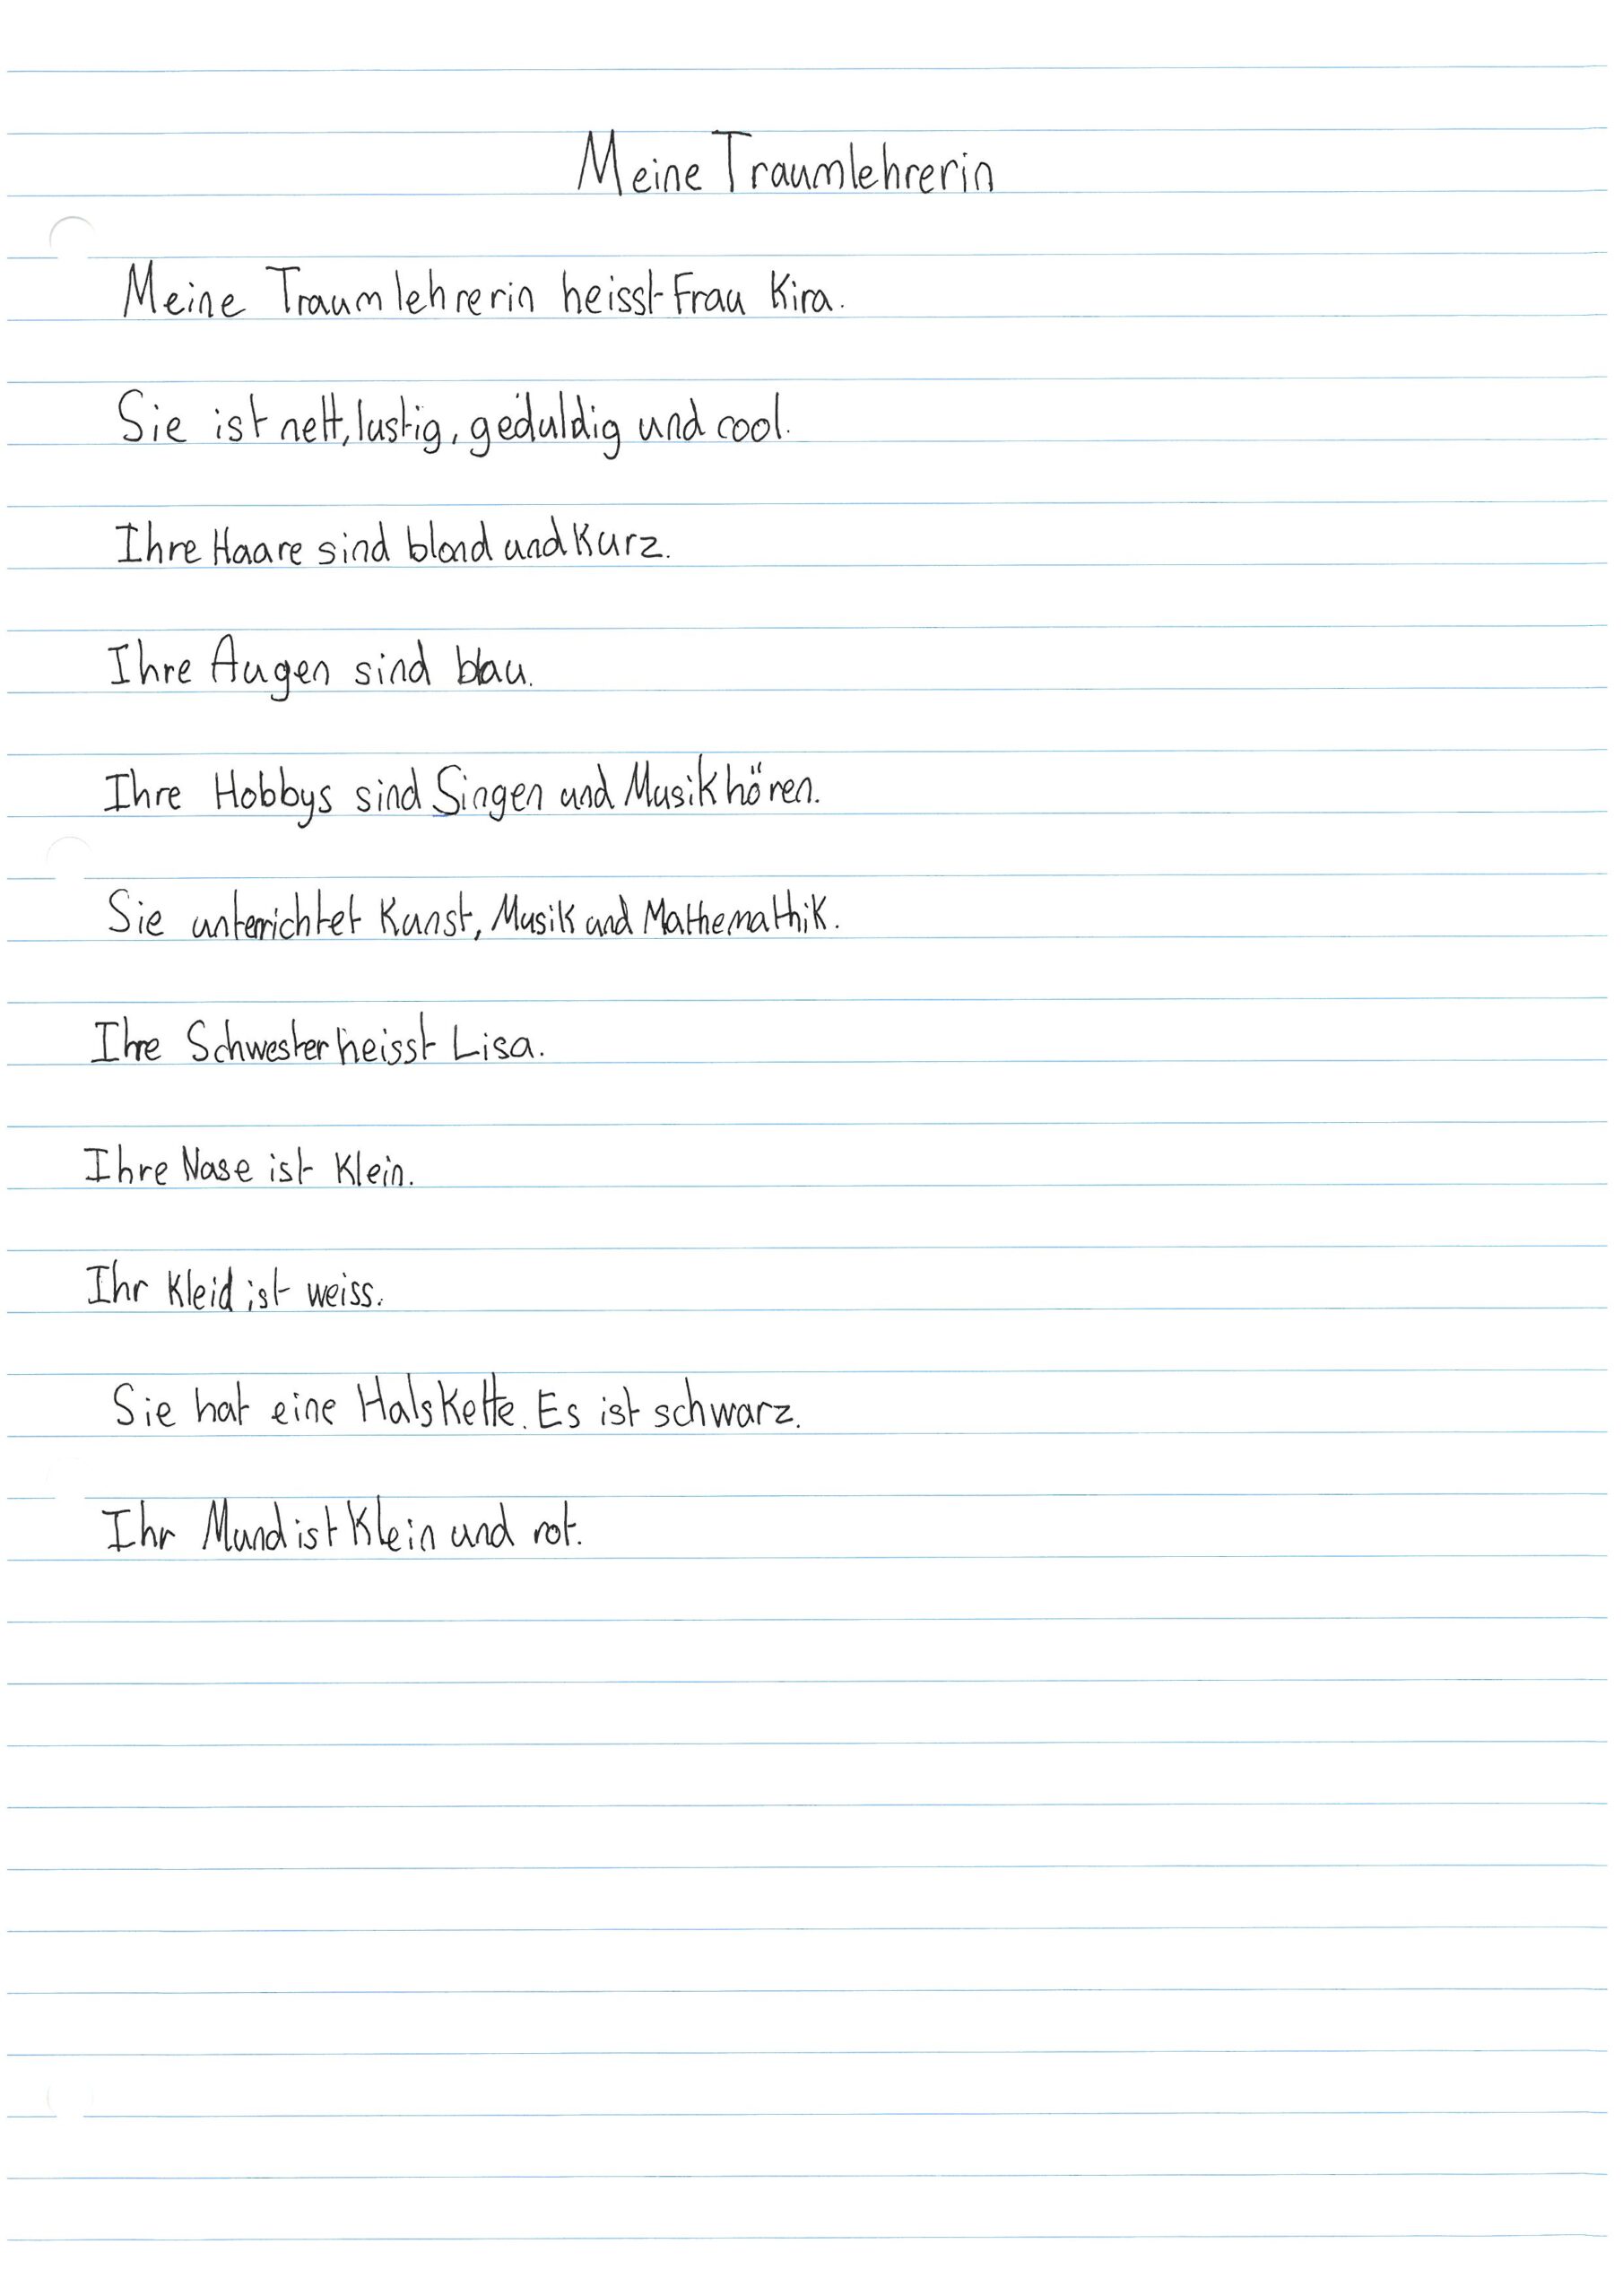 Meine Traumlehrerin
Meine Traumlehrerin heisst Frau Kira.
Sie ist nett, lustig, geduldig und cool.
Ihre Haare sind blond und kurz.
Ihre Augen sind blau.
Ihre Hobbys sind Singen und Musik hören.
Sie unterrichtet Kunst, Musik und Mathemathik.
Ihre Schwester heisst Lisa.
Ihre Nase ist klein.
Ihr Kleid ist weiss.
Sie hat eine Halskette. Es ist schwarz.
Ihr Mund ist klein und rot.